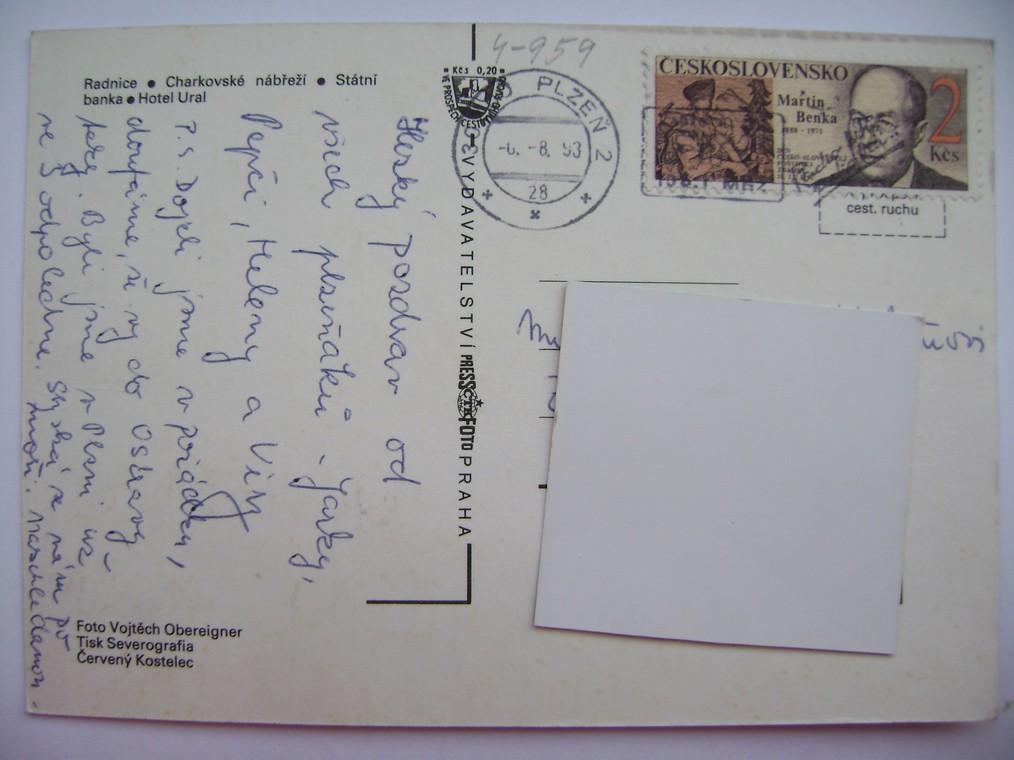 4-959
Radnice • Charkovské nábřeží • Státní
banka • Hotel Ural
Kčs 0,20
VE PROSPĚCH CESTOVNÍHO RUCHU
PLZEŇ 2
-6. -8. 93
28
ČESKOSLOVENSKO
Martin
Benka
1888 - 1971
2
Kčs
cest. ruchu
Hezký pozdrav od
všech plzeňáků - Jarky,
Pepči, Heleny a Víry
P.S. Dojeli jsme v pořádku,
doufáme, že vy do Ostravy
taky. Byli jsme v Plzni už
ve 3 odpoledne. Stýská se nám po
moři. Naschledanou.
VYDAVATELSTVÍ PRESSFOTO PRAHA
ČTK
Foto Vojtěch Obereigner
Tisk Severografia
Červený Kostelec